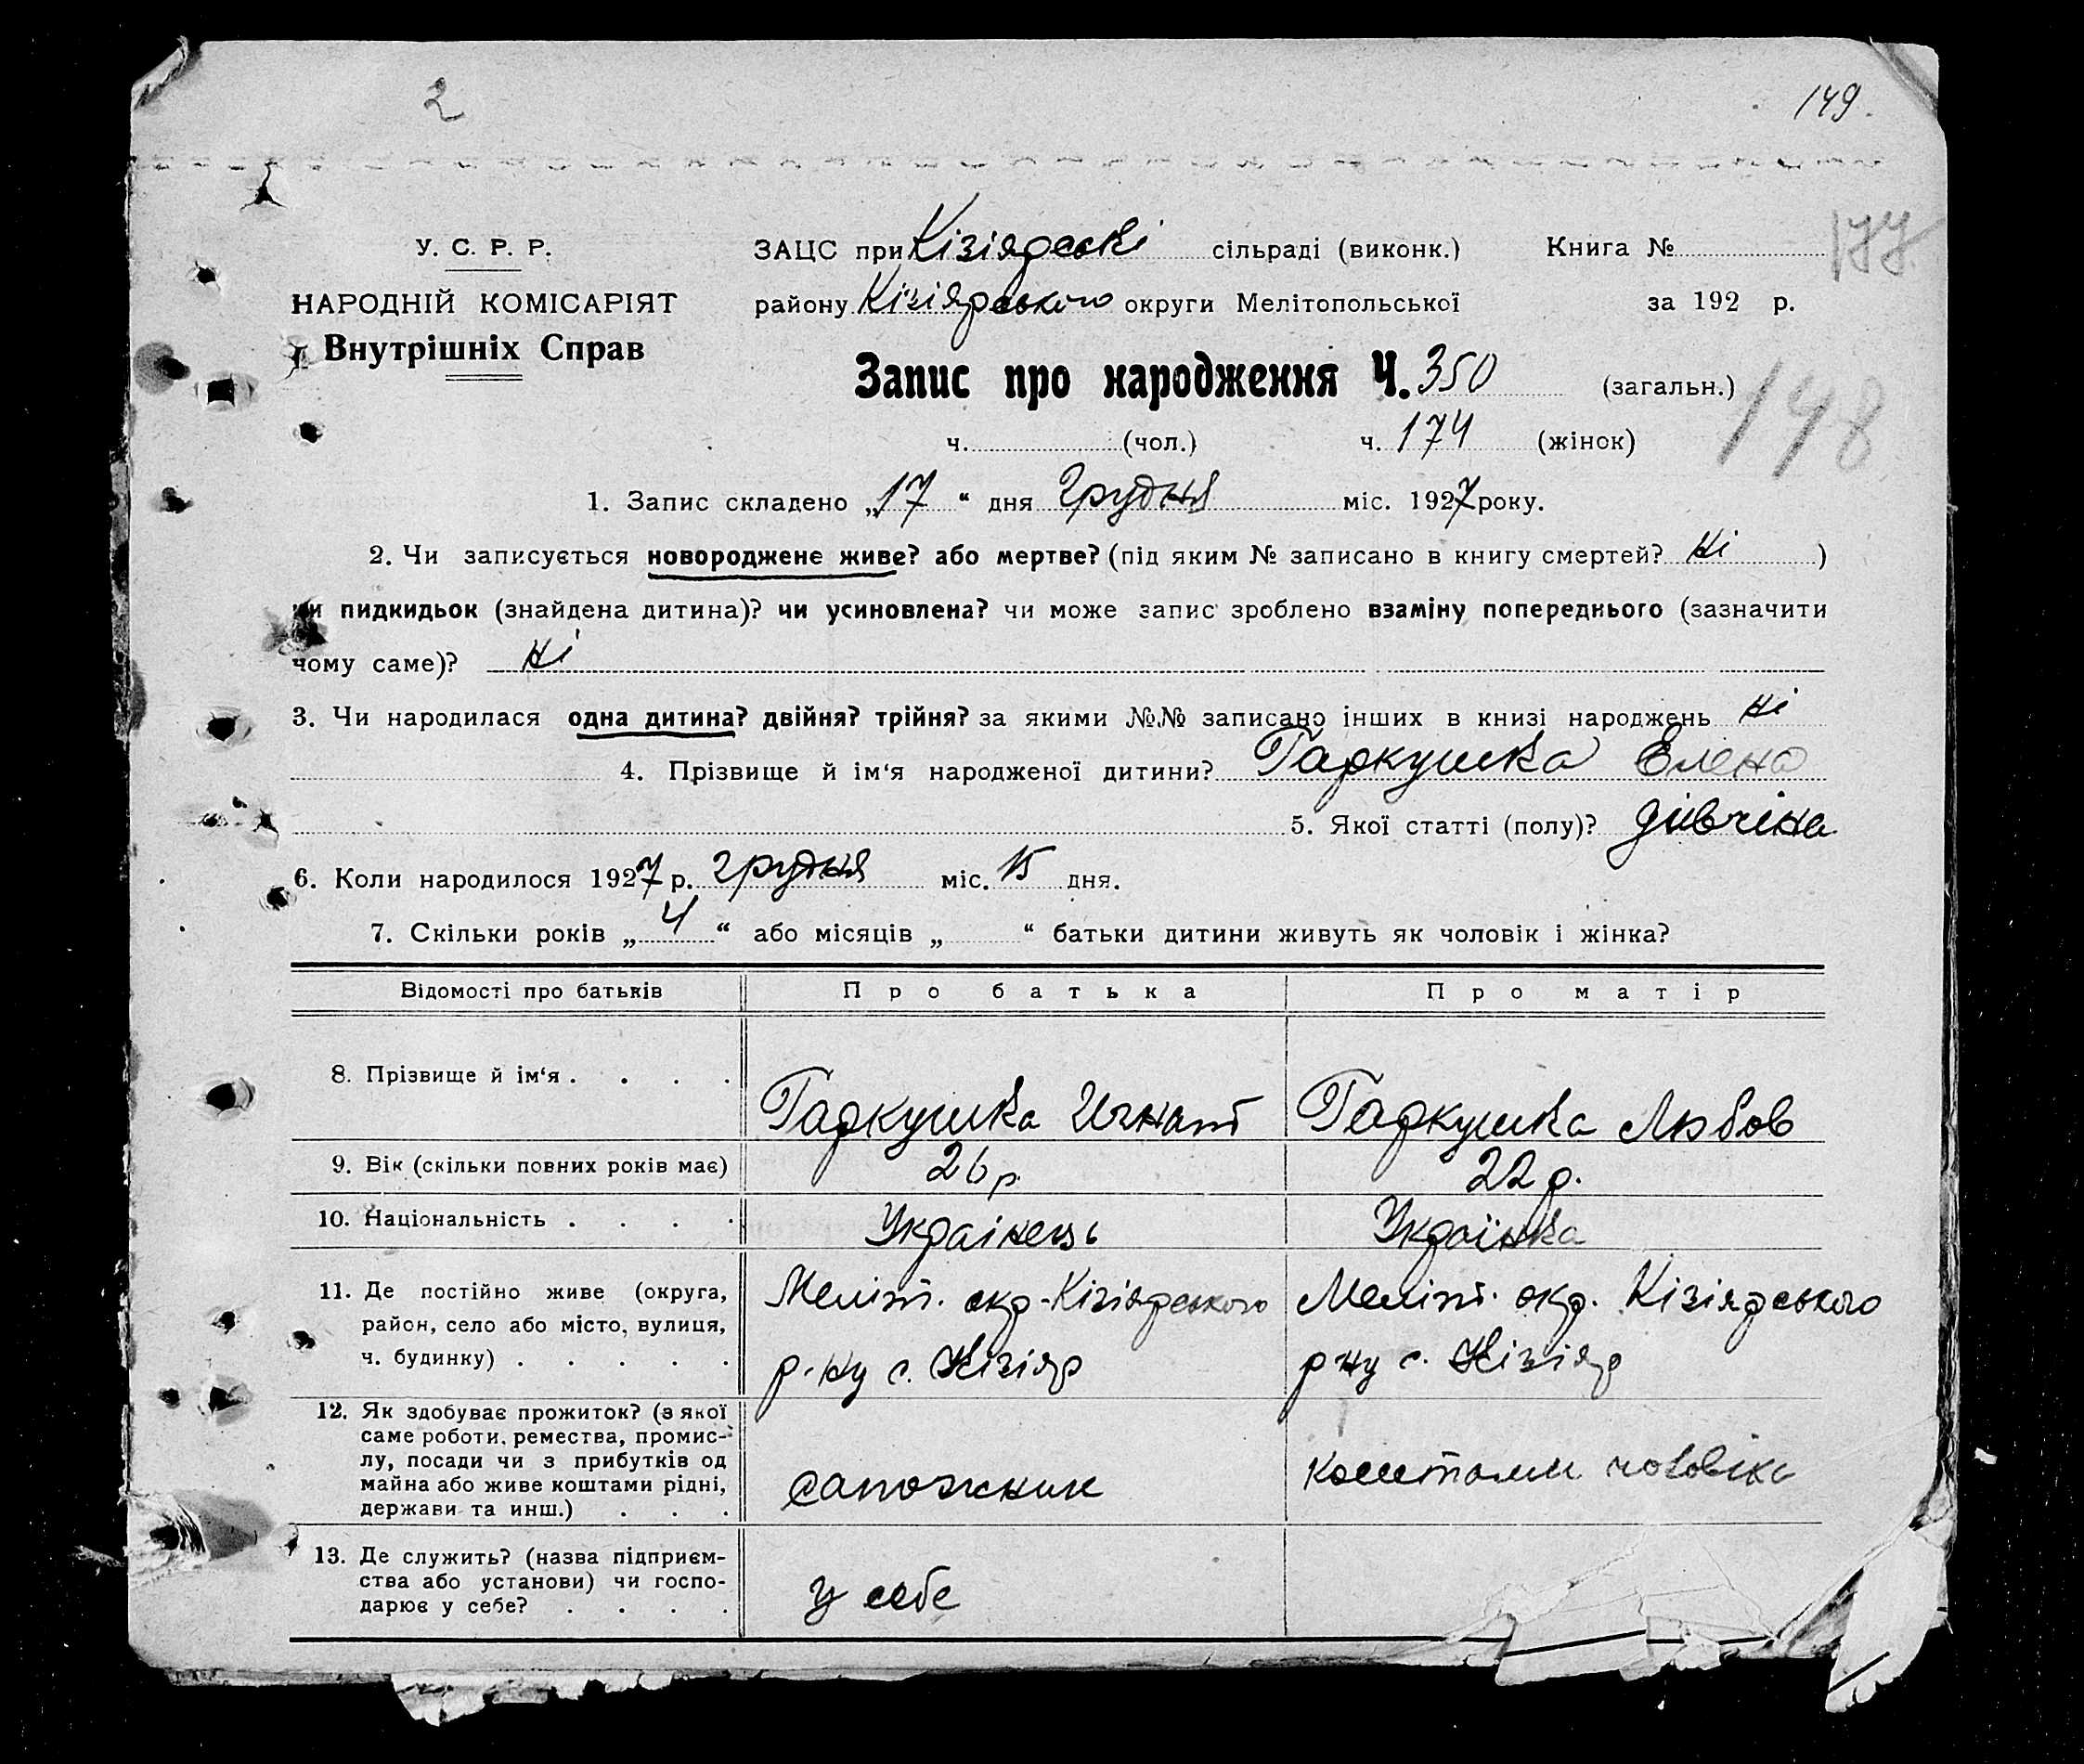 2
149.
У. С. Р. Р.
ЗАЦС при Кізіярські сільраді (виконк.) Книга № 177
НАРОДНІЙ КОМІСАРІЯТ
району Кізіярського округи Мелітопольської за 192 р.
Внутрішніх Справ
Запис про народження Ч. 350 (загальн.)
198
ч. (чол.) ч. 174 (жінок)
1. Запис складено „17“ дня грудня міс. 1927 року.
2. Чи записується новороджене живе? або мертве? (під яким № записано в книгу смертей? Ні )
чи пидкидьок (знайдена дитина)? чи усиновлена? чи може запис зроблено взаміну попереднього (зазначити
чому саме)? Ні
3. Чи народилася одна дитина? двійня? трійня? за якими №№ записано інших в книзі народжень Ні
4. Прізвище й ім‘я народженої дитини? Гаркушка Елена
5. Якої статті (полу)? дівчіна
6. Коли народилося 1927 р. грудня міс. 15 дня.
7. Скільки років „4“ або місяців „ “ батьки дитини живуть як чоловік і жінка?
Відомості про батьків Про батька Про матір
8. Прізвище й ім‘я . . . . Гаркушка Игнат Гаркушка Любов
9. Вік (скільки повних років має) 26 р. 22 р.
10. Національність . . . . Украінець Українка
11. Де постійно живе (округа, Меліт. окр. Кізіярського Меліт. окр. Кізіярського
район, село або місто, вулиця,
ч. будинку) . . . . . р-ну с. Кізіяр р-ну с. Кізіяр
12. Як здобуває прожиток? (з якої
саме роботи, ремества, промис-
лу, посади чи з прибутків од
майна або живе коштами рідні, сапожник коштами чоловіка
держави та инш.) . . .
13. Де служить? (назва підприєм-
ства або установи) чи госпо-
дарює у себе? . . . . у себе